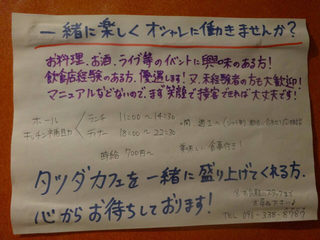 一緒に楽しくオシャレに働きませんか?
お料理、お酒、ライブ等のイベントに興味のある方!
飲食店経験のある方、優遇します!又、未経験者の方も大歓迎!
マニュアルなどないので、まず笑顔で接客できれば大丈夫です!
ホール
キッチン補助
ランチ 11:00〜14:30
ディナー 18:00〜22:30
時給 700円〜
美味しい食事付き!
タツダカフェを一緒に盛り上げてくれる方、
心からお待ちしております!
TEL 091-338-8787